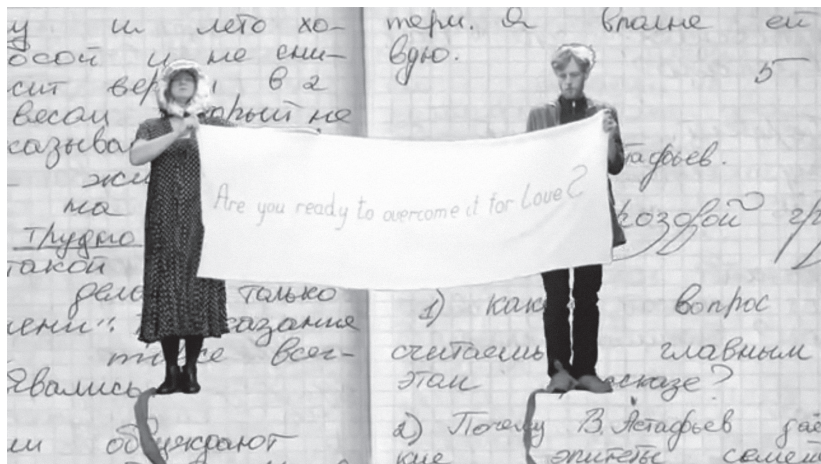 у и лето хо-
осой и не сни-
сит в 2
весом орый не
сазыва
жи
та
трудно
такой
дела только
ени". казание
же всег-
явались
ми
тери. Я вполне ей
вдю.
5
тафьев.
розовой гр
1) как вопрос
считаешь главным
асказе?
2) Почему В. Астафьев даё
кие эпитеты семей
Are you ready to overcome it for Love?